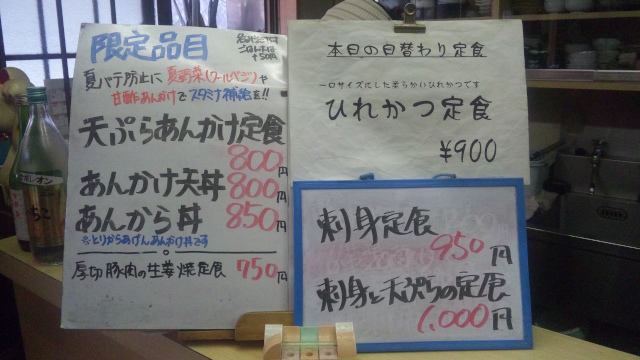 限定品目
夏バテ防止に夏野菜(クールベジ)や
甘酢あんかけでスタミナ補給を!!
天ぷらあんかけ定食
800円
あんかけ天丼 800円
あんから丼 850円
※とりからあげあんかけ丼です
厚切豚肉の生姜焼定食 750円
本日の日替わり定食
一口サイズにした柔らかいひれかつです
ひれかつ定食
¥900
刺身定食
950円
刺身と天ぷらの定食
1,000円